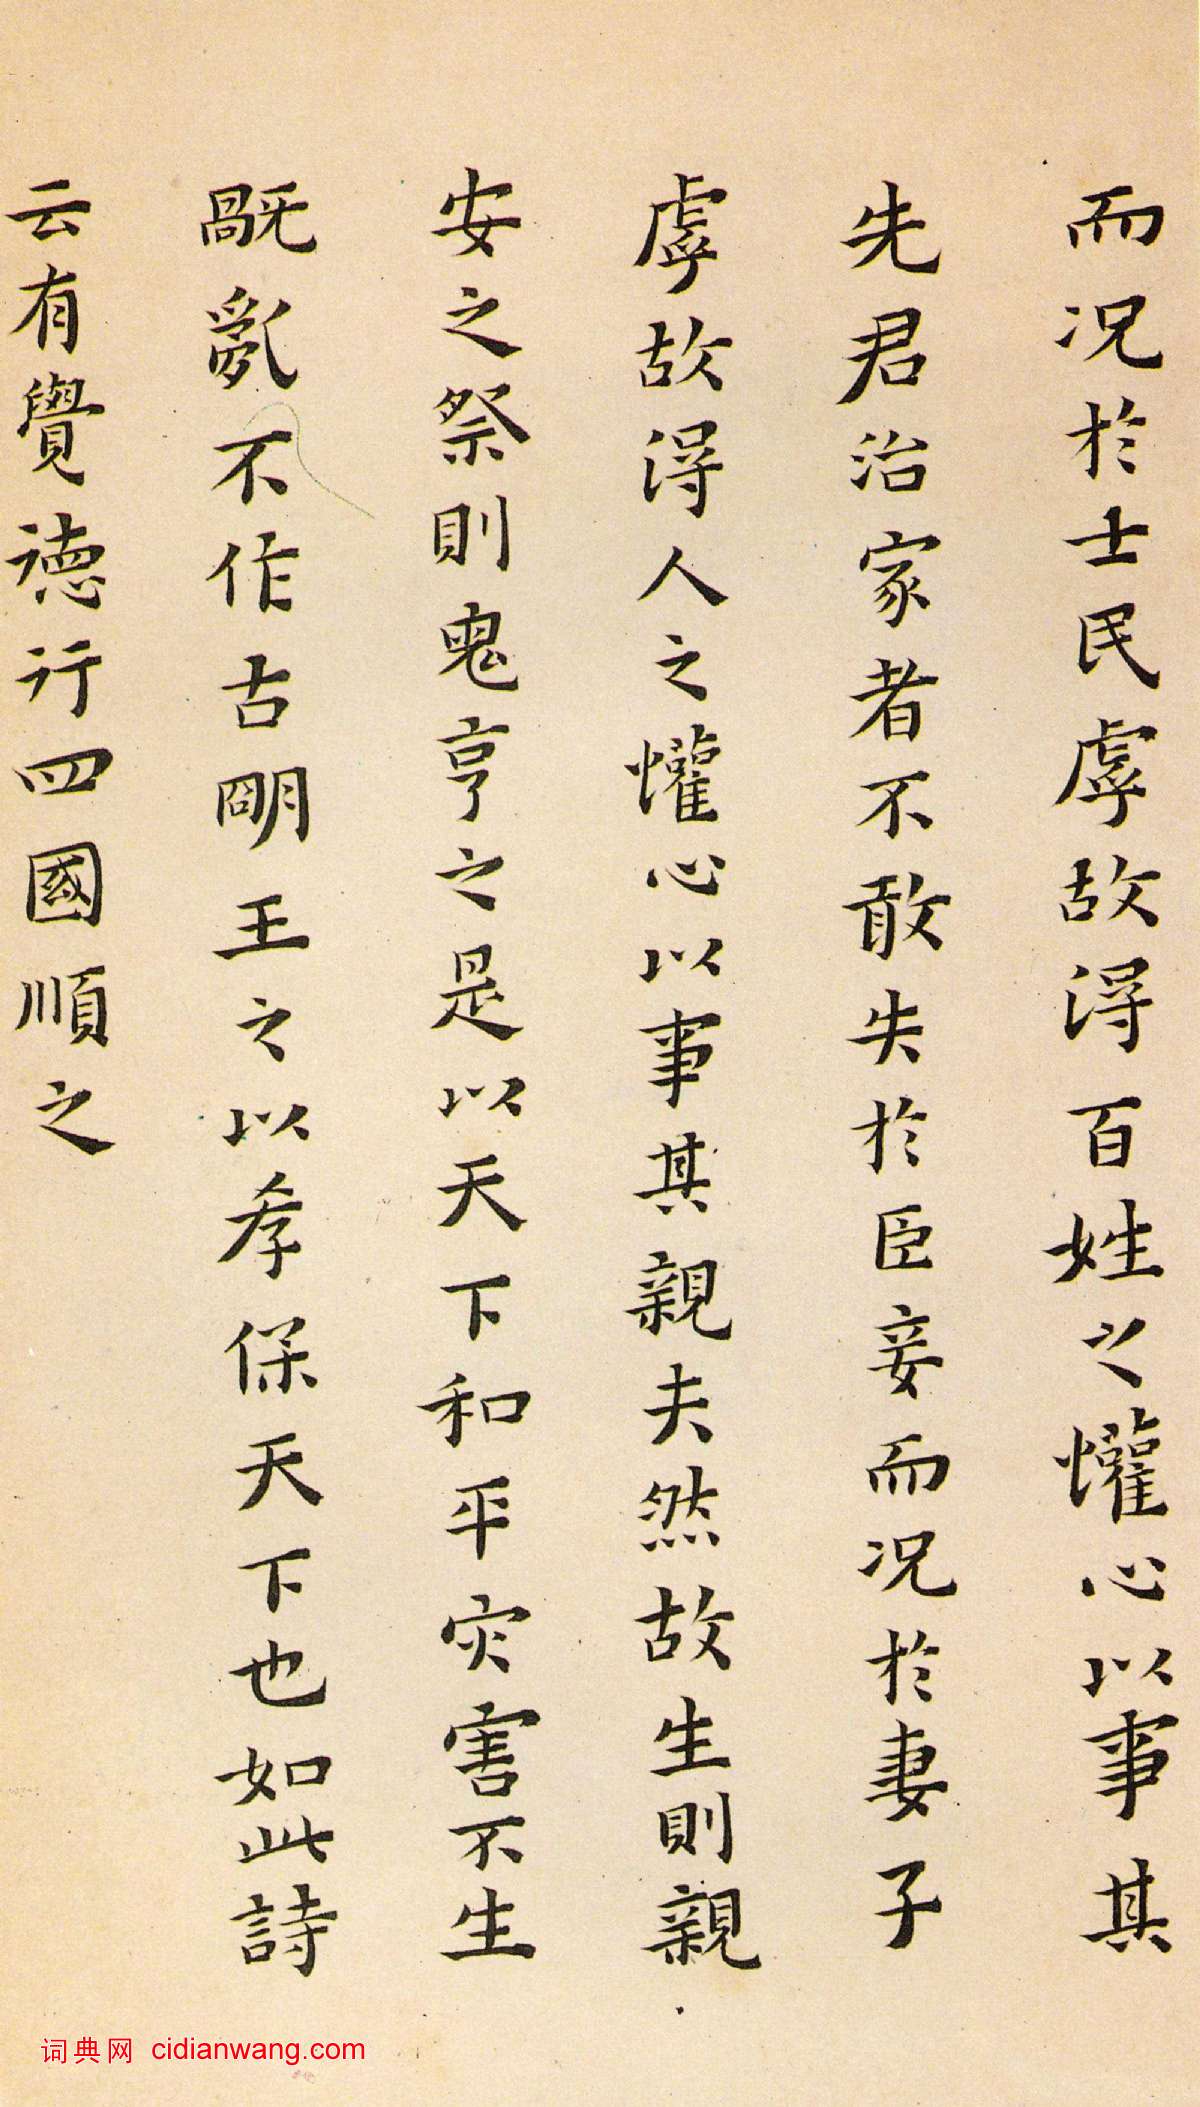 而況於士民虖故得百姓之懽心以事其
先君治家者不敢失於臣妾而況於妻子
虖故得人之懽心以事其親夫然故生則親
安之祭則鬼亨之是以天下和平灾害不生
䛒亂不作古朙王之以孝保天下也如此詩
云有覺德行四國順之
词典网 cidianwang.com